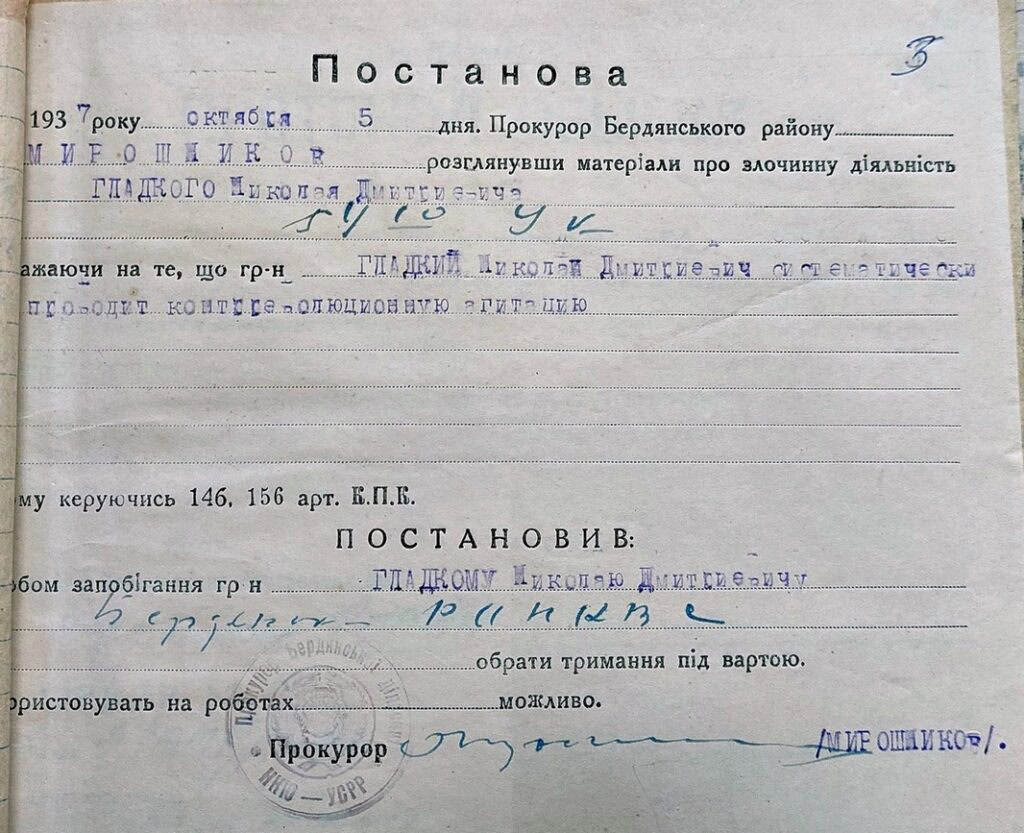 3
Постанова
1937 року октября 5 дня. Прокурор Бердянського району
МИРОШНИКОВ розглянувши матеріали про злочинну діяльність
ГЛАДКОГО Николая Дмитриевича
54/10 УК
ажаючи на те, що гр-н ГЛАДКИЙ Николай Дмитриевич систематически
проводит контрреволюционную агитацию
му керуючись 146, 156 арт. К.П.К.
ПОСТАНОВИВ:
обом запобігання гр н ГЛАДКОМУ Николаю Дмитриевичу
обрати тримання під вартою.
ористовувать на роботах можливо.
Прокурор /МИРОШНИКОВ/.
НКЮ — УСРР